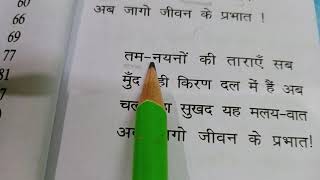 60
66
69
77
81
7
अब जागो जीवन के प्रभात !
तम-नयनों की ताराएँ सब
मुँद ही किरण दल में हैं अब
सुखद यह मलय-वात
जागो जीवन के प्रभात!